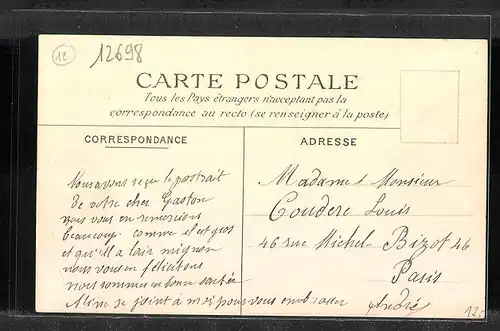 12
12698
CARTE POSTALE
Tous les Pays étrangers n'acceptant pas la
correspondance au recto (se renseigner à la poste)
CORRESPONDANCE
Nous avons reçu le portrait
de votre cher Gaston
nous vous en remercions
beaucoup. comme il est gros
et qu'il a lair mignon
nous vous en félicitons
nous sommes en bonne santée
Aline se joint à moi pour vous embrasser
André
ADRESSE
Madame & Monsieur
Coudere Louis
46 rue Michel-Bizot 46
Paris
12